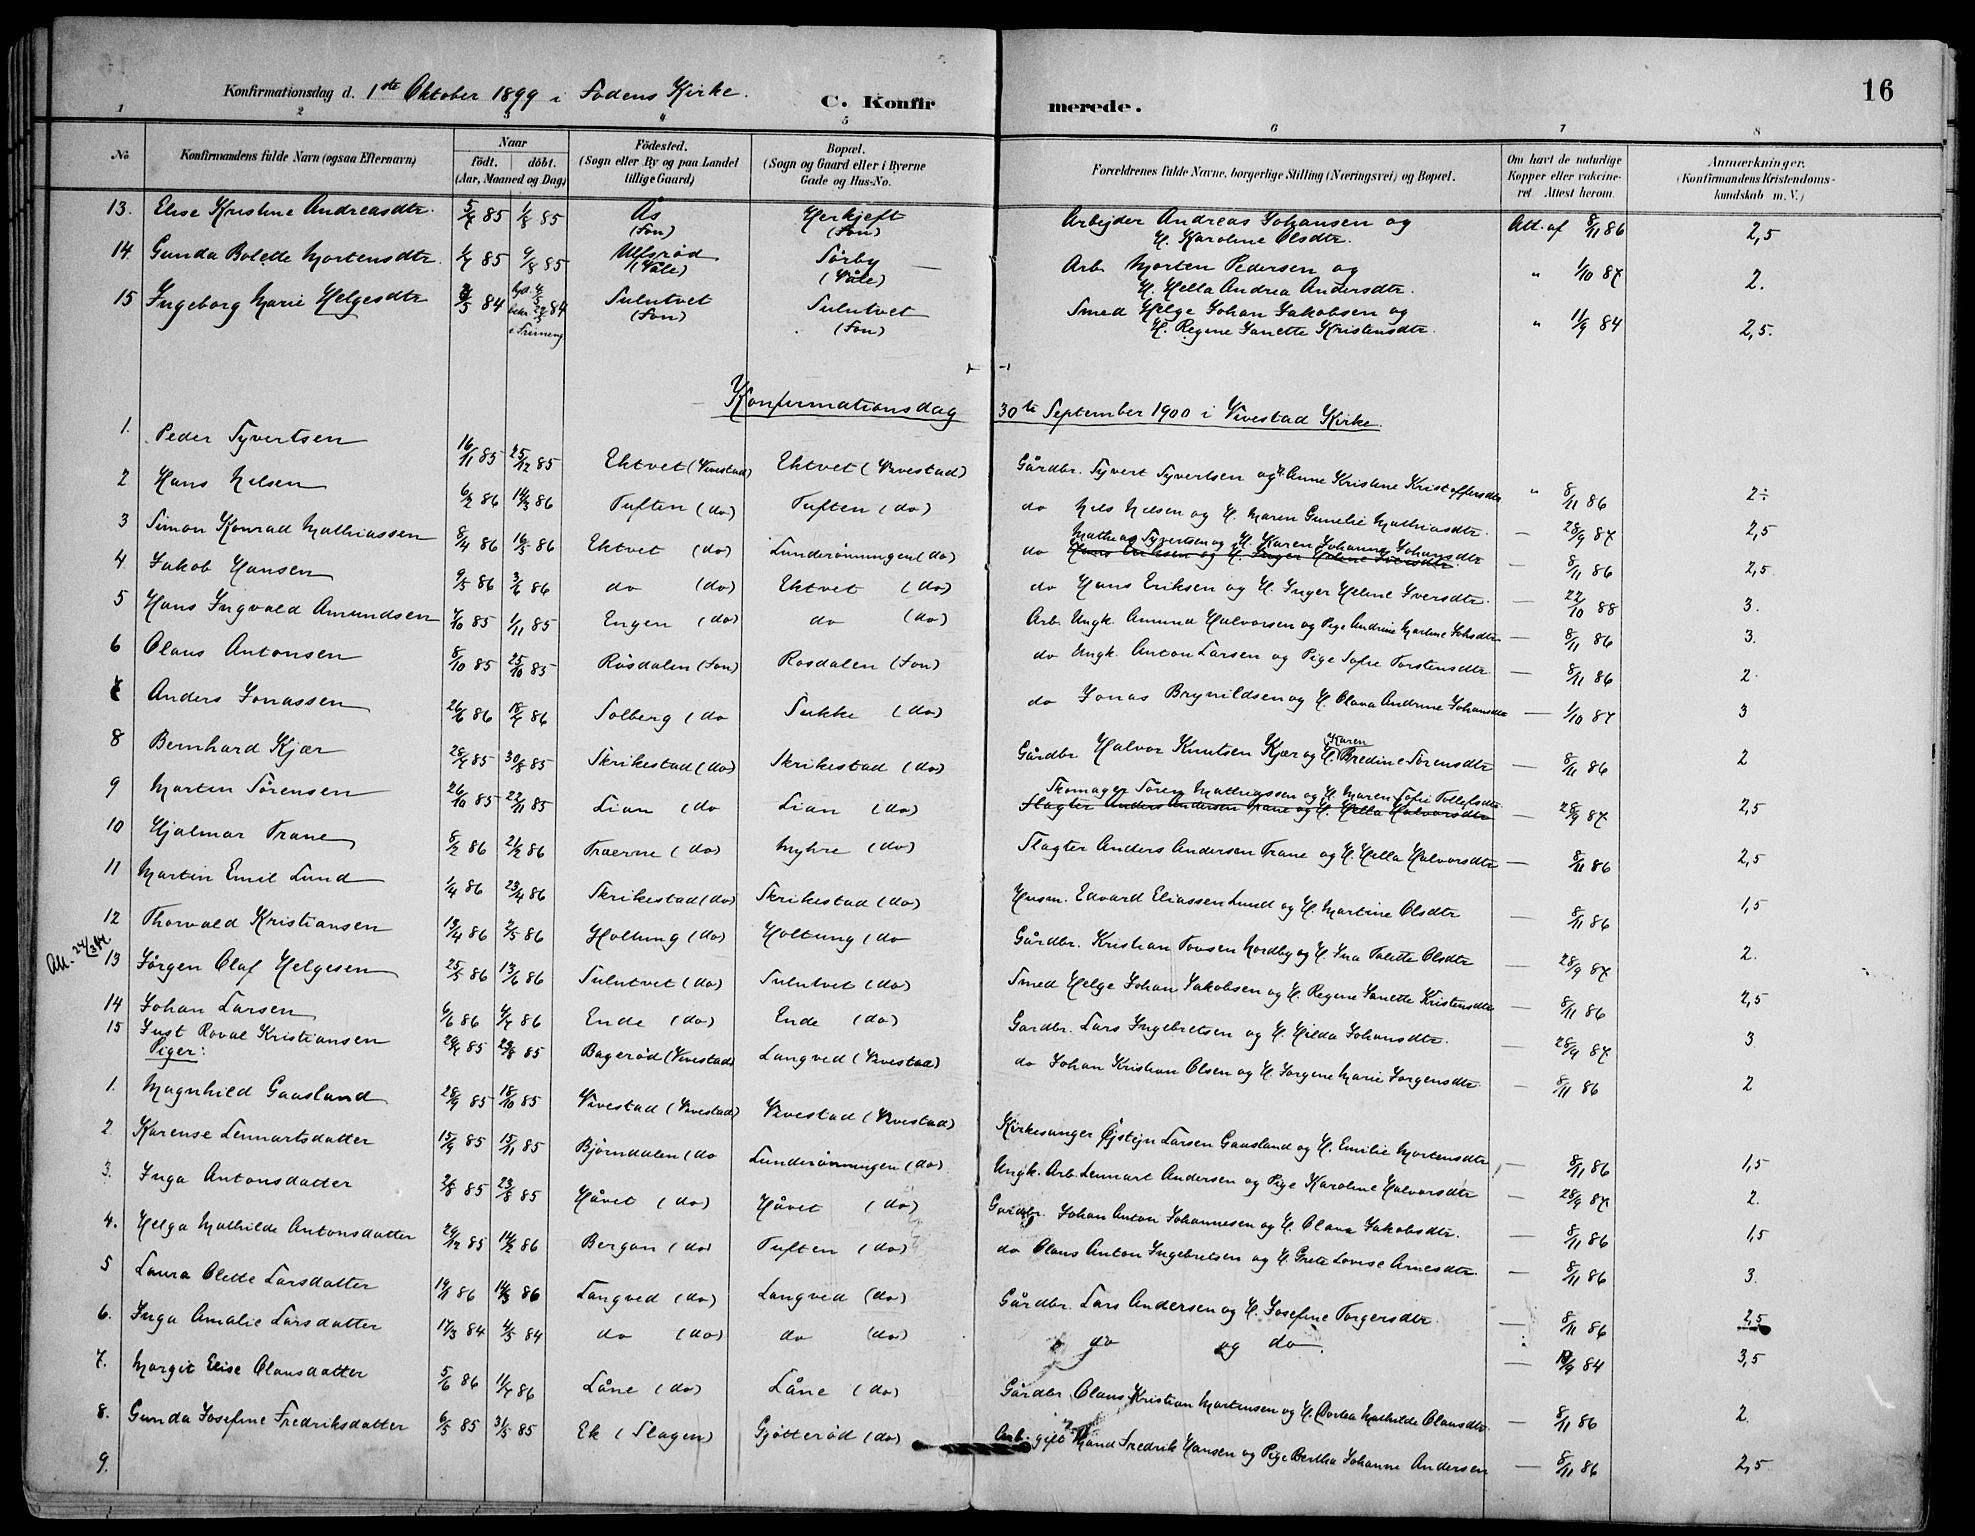 Konfirmationsdag d. 1ste Oktober 1899 i Fodens Kirke. C. Konfirmerede. 16
1 2 3 4 5 6 7 8
No Konfirmandens fulde Navn (ogsaa Efternavn) Naar födt. döbt. (Aar, Maaned og Dag) Födested. (Sogn eller By og paa Landet tillige Gaard) Bopæl. (Sogn og Gaard eller i Byerne Gade og Hus-No. Forældrenes fulde Navne, borgerlige Stilling (Næringsvei) og Bopæl. Om havt de naturlige Kopper eller vakcineret. Attest herom. Anmærkninger, (Konfirmandens Kristendomskundskab m. V.)
13. Elise Kristine Andreasdtr. 5/7 85 1/8 85 Ås (Fon) Herkjeft (Fon) Arbejder Andreas Johansen og H. Karoline Olsdtr. Att. af 8/11 86 2,5
14. Gunda Bolette Mortensdtr. 1/7 85 9/8 85 Ulfsrød (Våle) Sørby (Våle) Arb. Morten Pedersen og H. Hella Andrea Andersdtr. " 1/10 87 2.
15 Ingeborg Marie Helgesdtr 3/5 84 84 Sulutvet (Fon) Sulutvet (Fon) Smed Helge Johan Jakobsen og H. Regine Janette Kristensdtr. " 11/9 84 2,5.
Konfirmationsdag 30te September 1900 i Vivestad Kirke.
1. Peder Syvertsen 16/11 85 25/12 85 Ektvet (Vivestad) Ektvet (Vivestad) Gårdbr. Syvert Syvertsen og H. Anne Kristine Kristoffersdtr " 8/11 86 2÷
2 Hans Nilsen 6/2 86 14/3 86 Tuften (do) Tuften (do) do Nils Nilsen og H. Maren Gunelie Mathiasdtr. — 28/9 87 2,5
3 Simon Konrad Mathiassen 8/4 86 16/5 86 Ektvet (do) Lunderønningen (do) do Mathias Syvertsen og H. Karen Johanne Johansdtr Hans Eriksen og H. Inger Helene Iversdtr — 8/11 86 2,5
4. Jakob Hansen 9/5 86 3/6 86 do (do) Ektvet (do) do Hans Eriksen og H. Inger Helene Iversdtr. — 22/10 88 3.
5 Hans Ingvald Amundsen 7/10 85 1/11 85 Engen (do) do (do) Arb. Ungk. Amund Halvorsen og Pige Andrine Martine Johsdtr — 8/11 86 3.
6 Olaus Antonsen 8/10 85 25/10 85 Røsdalen (Fon) Rosdalen (Fon) do Ungk. Anton Larsen og Pige Sofie Torstensdtr. — 8/11 86 2
7 Anders Jonassen 26/6 86 18/7 86 Solberg (do Sukke (do) do Jonas Brynildsen og H. Olava Andrine Johansdtr — 1/10 87 3
8 Bernhard Kjær 28/7 85 30/8 85 Skrikestad (do) Skrikestad (do) Gårdbr. Halvor Knutsen Kjær og H. Karen Bredine Sørensdtr — 8/11 86 2
9 Martin Sørensen 26/10 85 22/11 85 Lian (do Lian (do) Skomager Søren Mathiassen og H. Maren Sofie Tollefsdtr Slagter Anders Andersen Trane og H. Hella Halvorsdtr — 28/9 87 2,5
10 Hjalmar Trane 8/2 86 21/2 86 Traerne (do) Myhre (do) Slagter Anders Andersen Trane og H. Hella Halvorsdtr — 8/11 86 2,5
11 Martin Emil Lund 1/4 86 23/4 86 Skrikestad (do) Skrikestad (do) Husm. Edvard Eliassen Lund og H. Martine Olsdtr — 8/11 86 1,5
12 Thorvald Kristiansen 13/4 86 2/5 86 Holtung (do) Holtung (do Gårdbr. Kristian Tovsen Nordby og H. Ina Talette Olsdtr — 28/9 87 2.
13 Jørgen Olaf Helgesen 25/5 86 13/6 86 Sulutvet (do) Sulutvet (do) Smed Helge Johan Jakobsen og H. Regine Janette Kristensdtr — 8/11 86 2,5
14 Johan Larsen 6/6 86 4/7 86 Ende (do) Ende (do) Gårdbr. Lars Ingebretsen og H. Hilda Johansdtr. — 28/9 87 3
15 Just Roval Kristiansen 29/7 85 23/8 85 Bagerød (Vivestad) Langved (Vivestad) do Johan Kristian Olsen og H. Jørgine Marie Jørgensdtr — 8/11 86 2
Piger:
1. Magnhild Gaasland 28/9 85 18/10 85 Vivestad (Vivestad) Vivestad (Vivestad) Kirkesanger Øjstejn Larsen Gaasland og H. Emilie Mortensdtr — 8/11 86 1,5
2. Karense Lennartsdatter 15/9 85 15/11 85 Bjørndalen (do Lunderønningen (do) Ungk. Arb. Lennart Andersen og Pige Karoline Halvorsdtr — 28/9 87 2.
3. Inga Antonsdatter 2/8 85 23/8 85 Håvet (do) Håvet (do) Gårdbr. Johan Anton Johannesen og H. Olava Jakobsdtr. — 8/11 86 1,5
4. Helga Mathilde Antonsdatter 29/12 85 14/2 86 Bergan (do) Tuften (do) do Olaus Anton Ingebretsen og H. Grete Lovise Arnesdtr. — 8/11 86 3.
5 Laura Olette Larsdatter 19/1 86 14/3 86 Langved (do) Langved (do) Gårdbr. Lars Andersen og H. Josefine Torgersdtr. — 8/11 86 2,5
6. Inga Amalie Larsdatter 17/3 84 4/5 84 do (do) do (do) do og do. — 84 3,5
7. Margit Elise Olausdatter 5/6 86 11/7 86 Låne (do) Låne (do) Gårdbr Olaus Kristian Martinsen og H. Dortea Mathilde Olausdtr. — 8/11 86 2.
8. Gunda Josefine Fredriksdatter 6/5 85 31/5 85 Ek (Slagen) Gjøtterød (do) Arb. gift Mand Fredrik Hansen og Pige Bertha Johanne Andersen — 8/11 86 2,5
9.